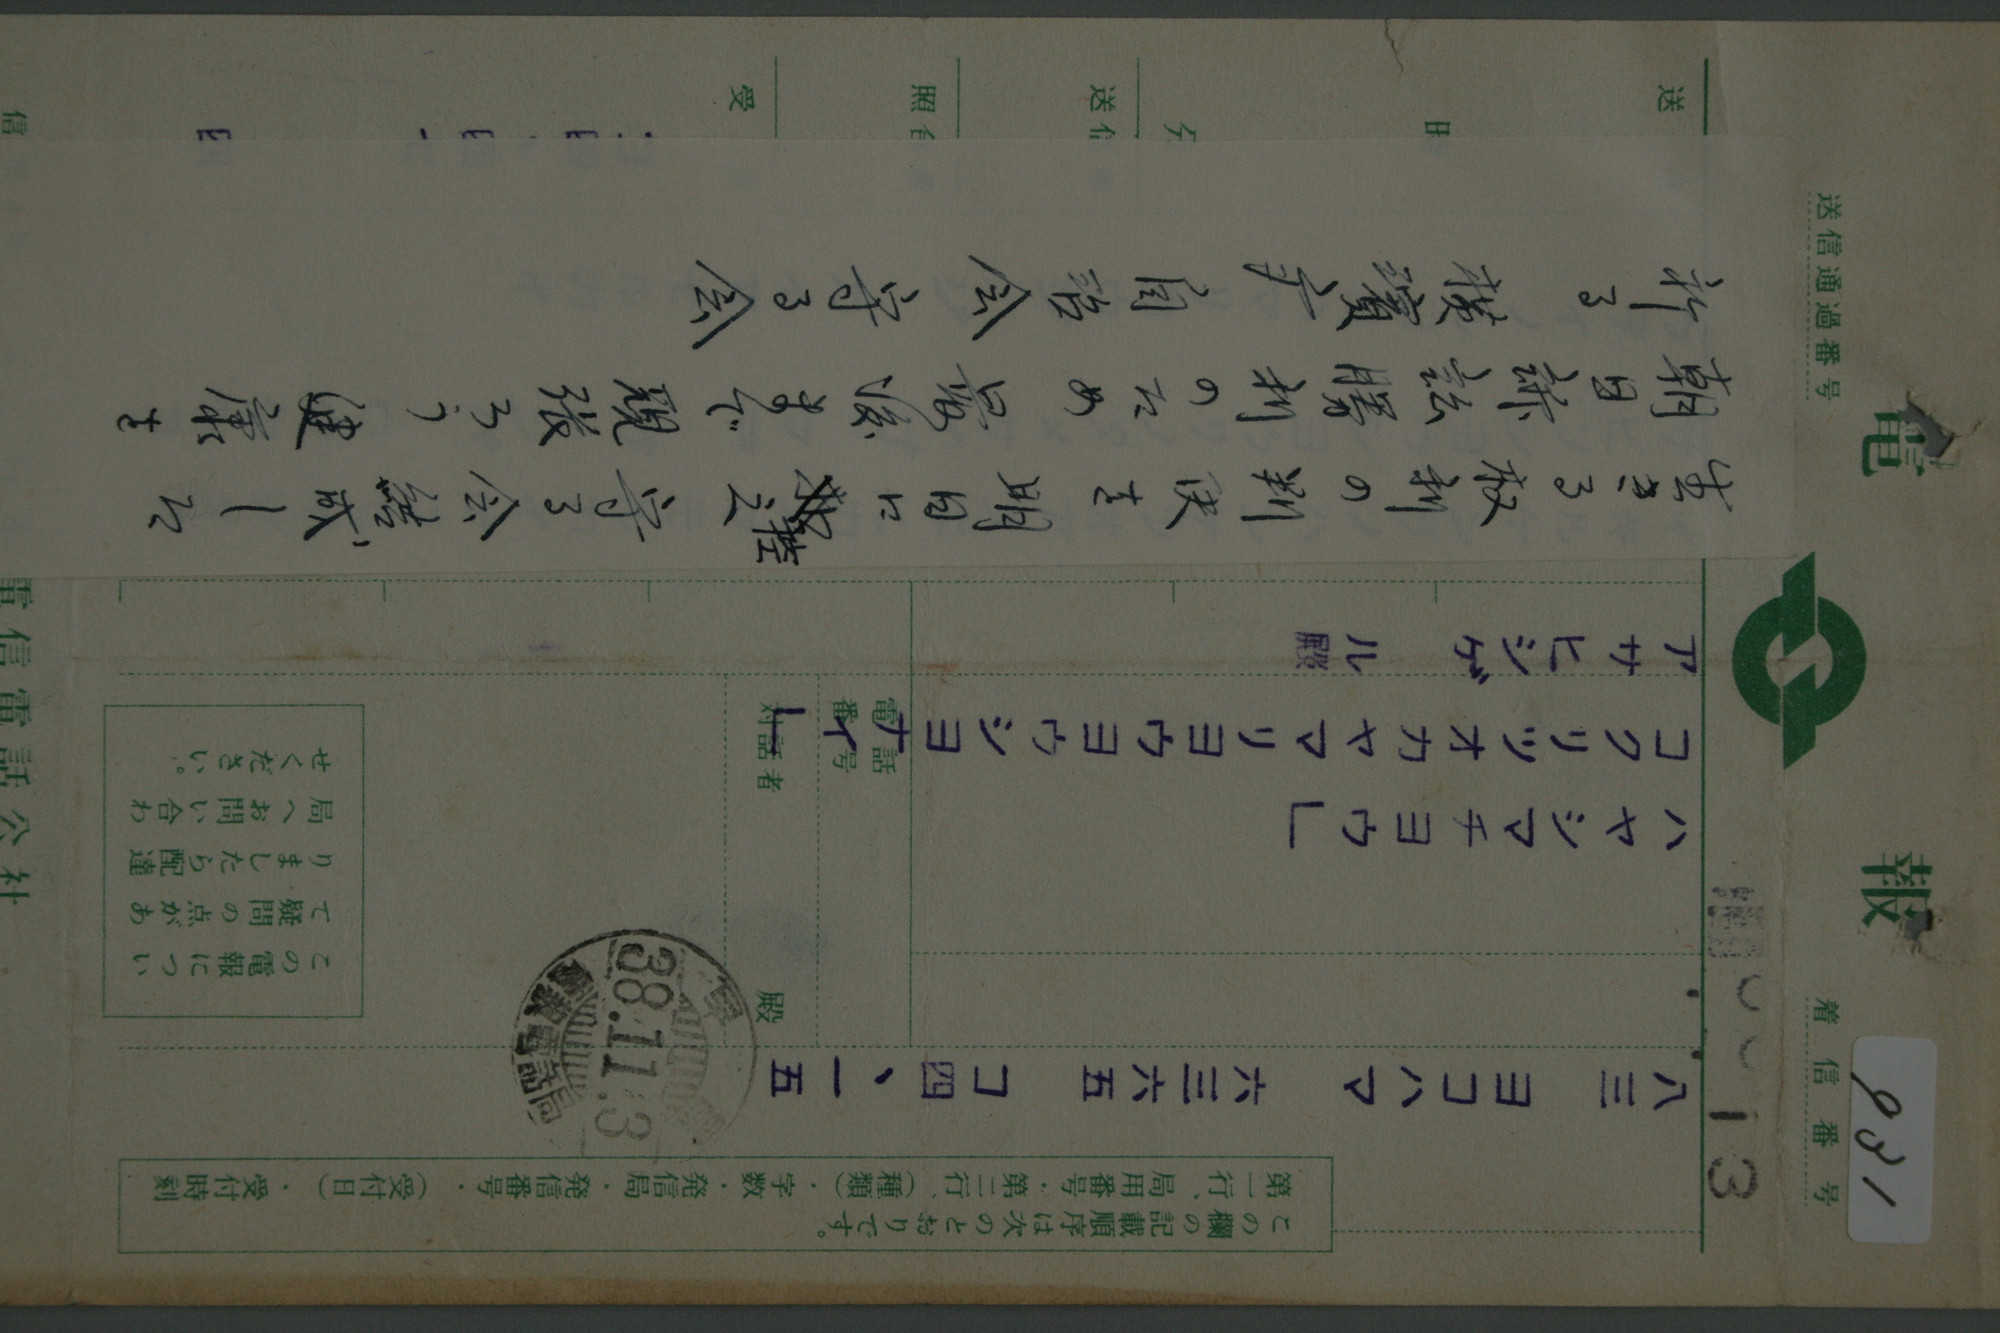 電報
送信通過番号
着信番号
931
13
この欄の記載順序は次のとおりです。
第一行、局用番号・第二行、(種類)・字数・発信局・発信番号・(受付日)・受付時刻
八三 ヨコハマ 六三六五 コ四、一五
ハヤシマチヨウ」
コクリツオカヤマリヨウヨウシヨナイ」
アサヒシゲル殿
生きる权利の判決を明日に控え守る会結成した
朝日訴訟勝利のため最後まで頑張ろう健康を
祈る 自治会守る会
電話番号
対話者
殿
38.11.3
この電報につい
て疑問の点があ
りましたら配達
局へお問い合わ
せください。
送
送信
照
受
信
電信電話公社